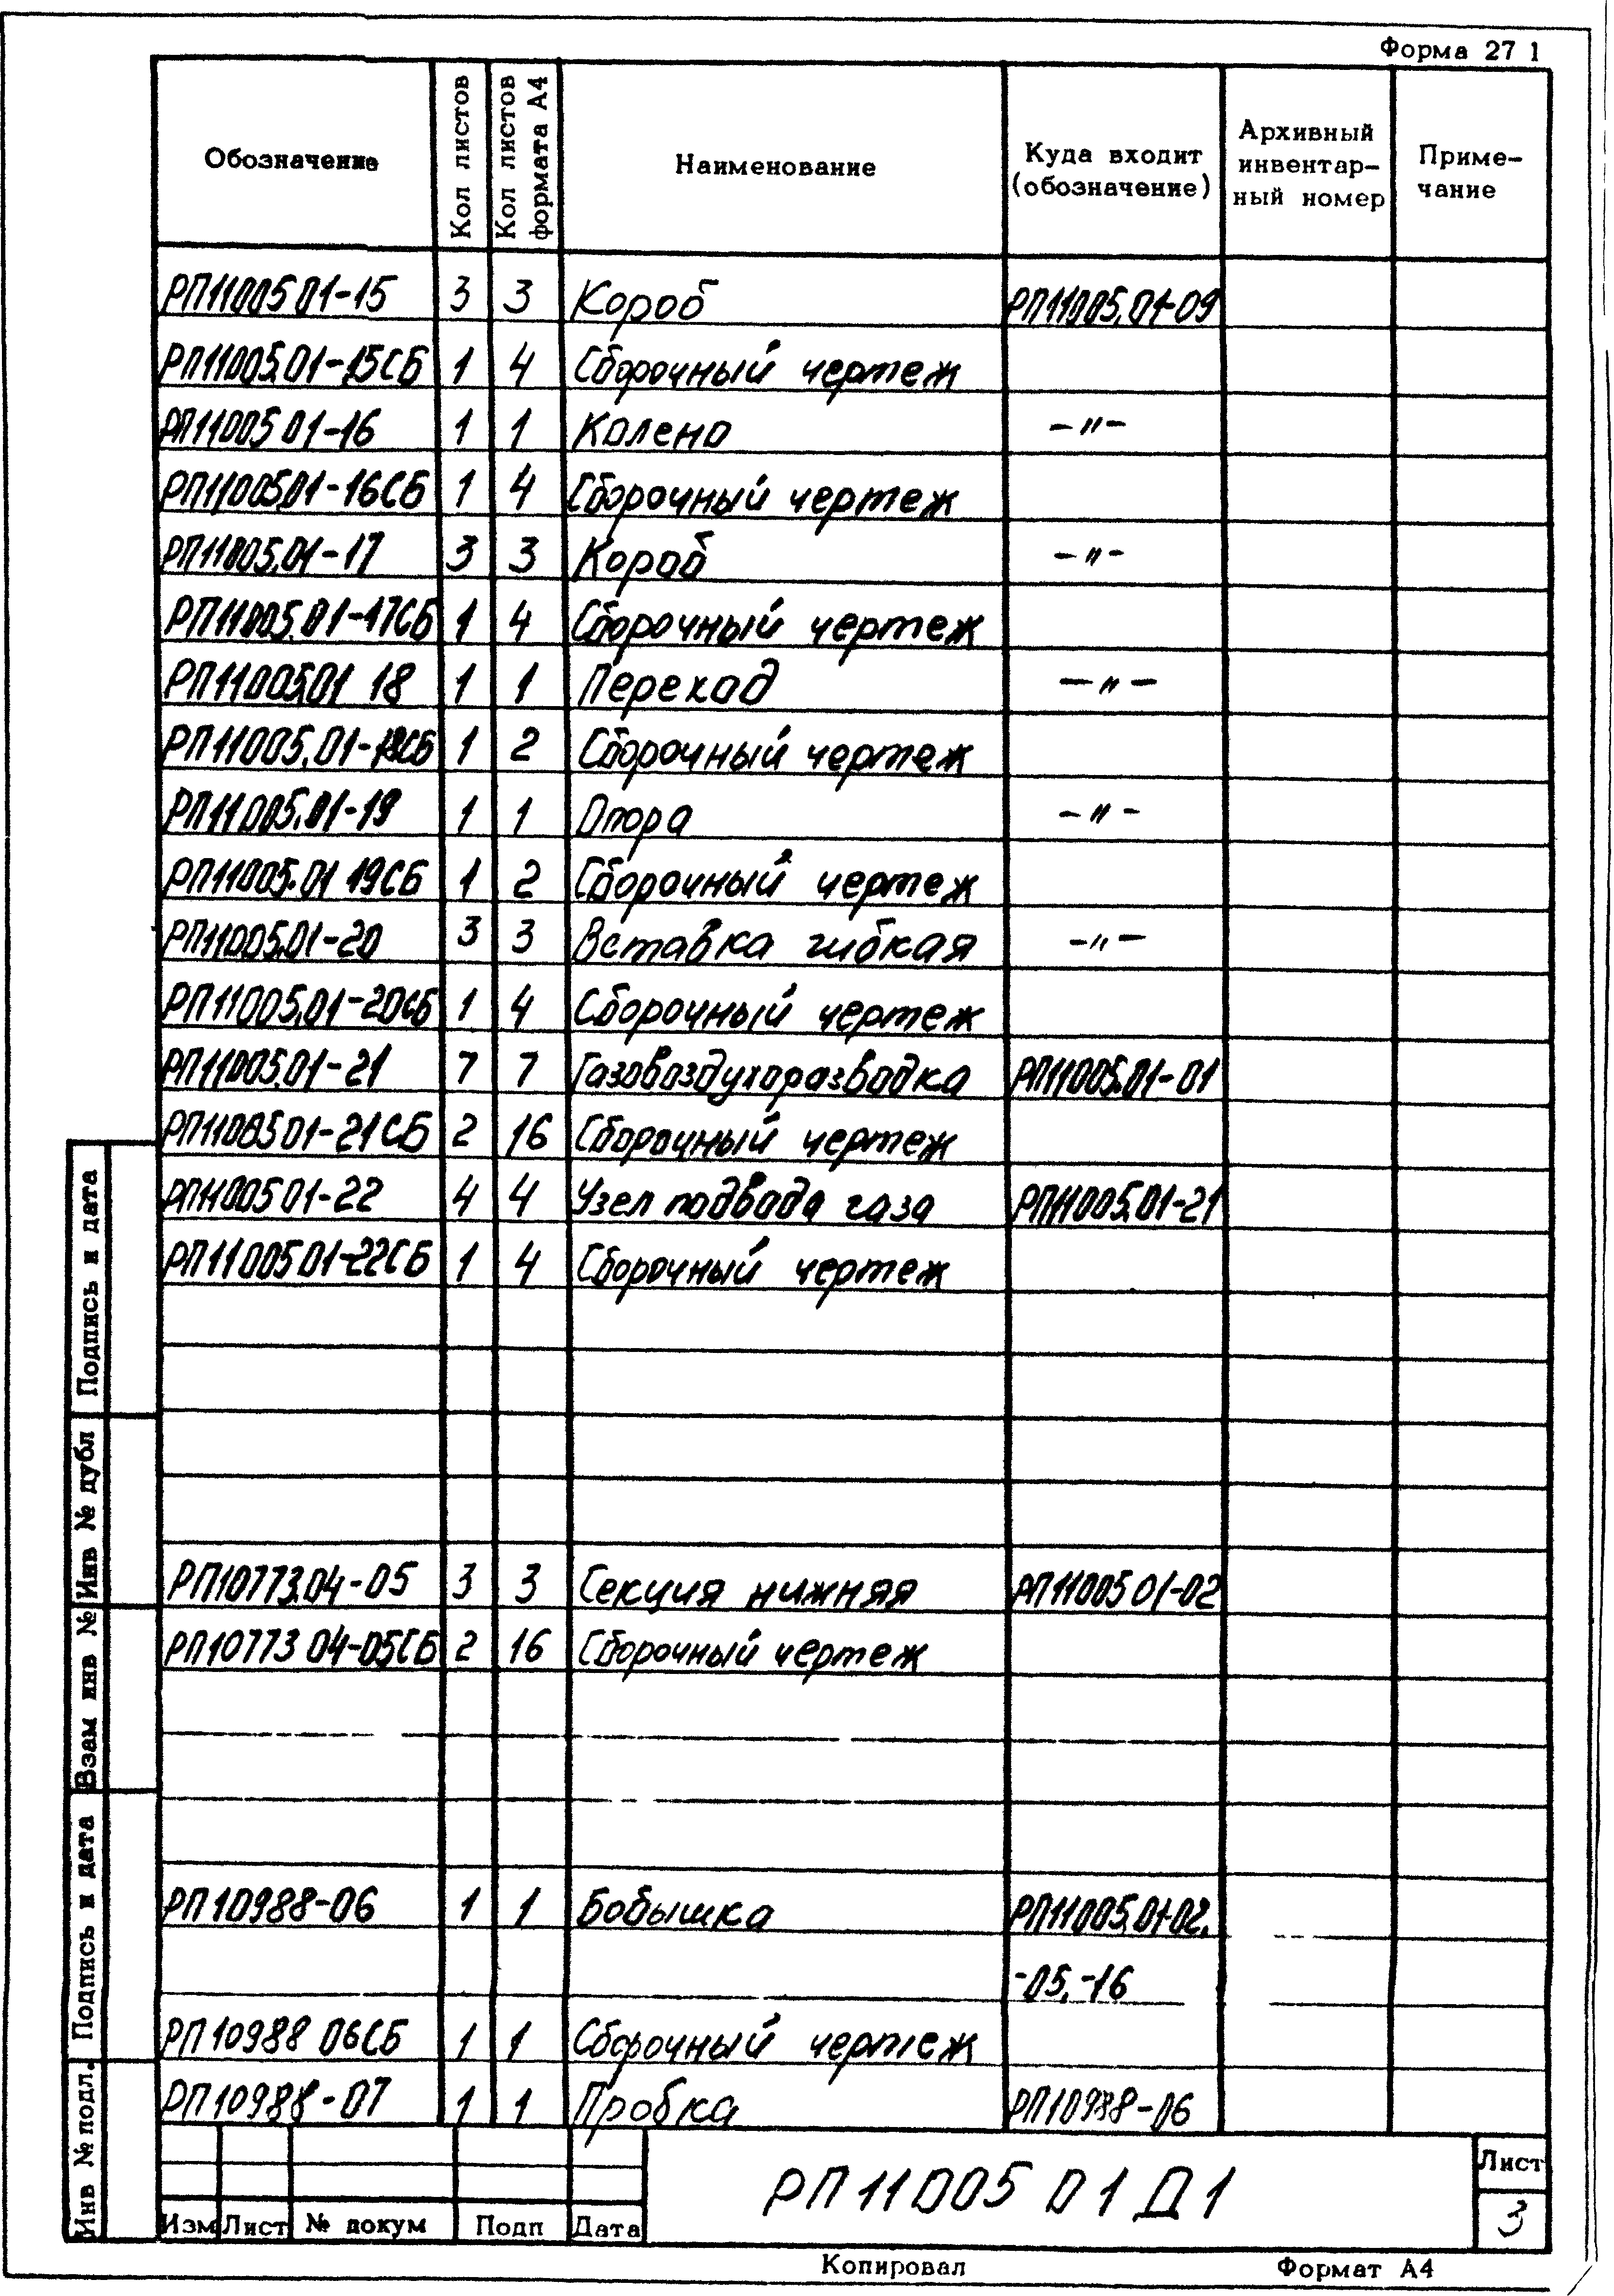 Форма 27 1
Обозначение Кол листов Кол листов формата А4 Наименование Куда входит (обозначение) Архивный инвентар-ный номер Приме-чание
РП11005 01-15 3 3 Короб РП11005.01-09
РП11005.01-15СБ 1 4 Сборочный чертеж
РП11005 01-16 1 1 Колено -"-
РП11005.01-16СБ 1 4 Сборочный чертеж
РП11005.01-17 3 3 Короб -"-
РП11005.01-17СБ 1 4 Сборочный чертеж
РП11005.01 18 1 1 Переход -"-
РП11005.01-18СБ 1 2 Сборочный чертеж
РП11005.01-19 1 1 Опора -"-
РП11005.01 19СБ 1 2 Сборочный чертеж
РП11005.01-20 3 3 Вставка гибкая -"-
РП11005.01-20СБ 1 4 Сборочный чертеж
РП11005.01-21 7 7 Газовоздухоразводка РП11005.01-01
РП11005 01-21СБ 2 16 Сборочный чертеж
РП11005 01-22 4 4 Узел подвода газа РП11005.01-21
РП11005 01-22СБ 1 4 Сборочный чертеж
РП10773.04-05 3 3 Секция нижняя РП11005 01-02
РП10773 04-05СБ 2 16 Сборочный чертеж
РП10988-06 1 1 Бобышка РП11005.01-02,
-05,-16
РП10988 06СБ 1 1 Сборочный чертеж
РП10988-07 1 1 Пробка РП10988-06
Подпись и дата
Инв № дубл
Взам инв №
Подпись и дата
Инв № подл.
Изм Лист № докум Подп Дата
РП11005 01 Д1
Лист
3
Копировал Формат А4